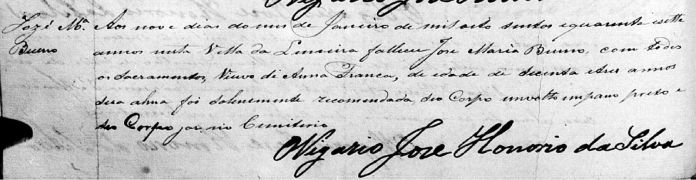 Jozé M.ª Aos nove dias do mes de Janeiro de mil oito sentos e quarenta e sette
Bueno annos nesta Villa da Limeira falleceu Jose Maria Bueno, com todos
os Sacramentos, Viuvo de Anna Franca, de idade de e tres annos
sua alma foi solenemente recomendada seo Corpo envolto em pano preto e
seo Corpo jas no Cemiterio
Vigario Jose Honorio da Silva